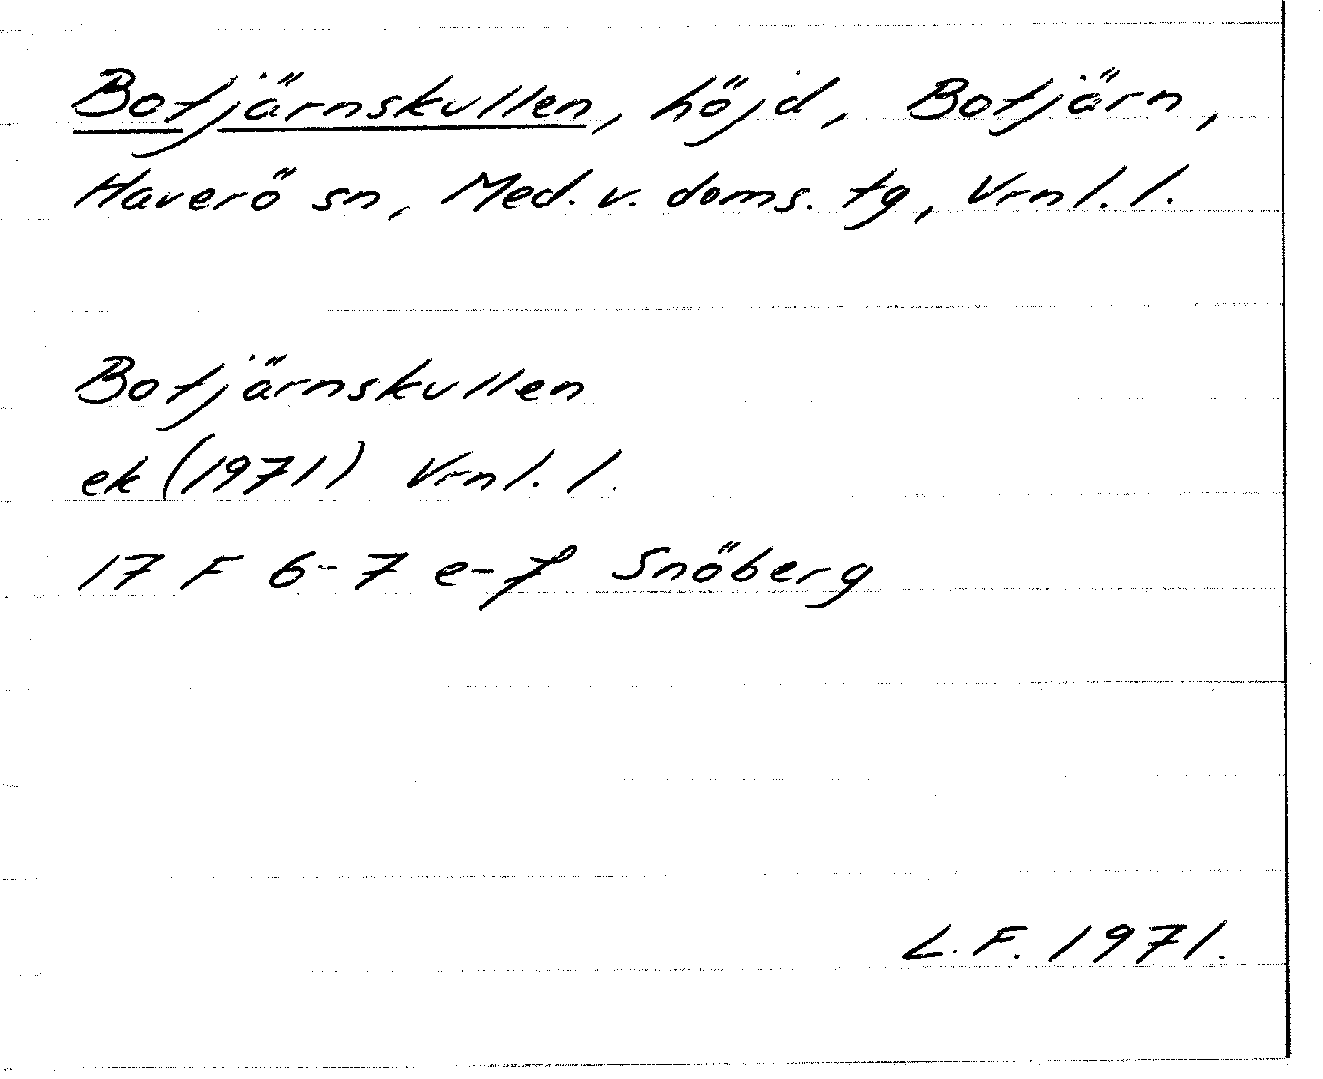 Botjärnskullen, höjd, Botjärn,
Haverö sn, Med. v. doms. tg, Vrnl. l.
Botjärnskullen
ek (1971) Vrnl. l.
17 F 6-7 e-f Snöberg
L. F. 1971.